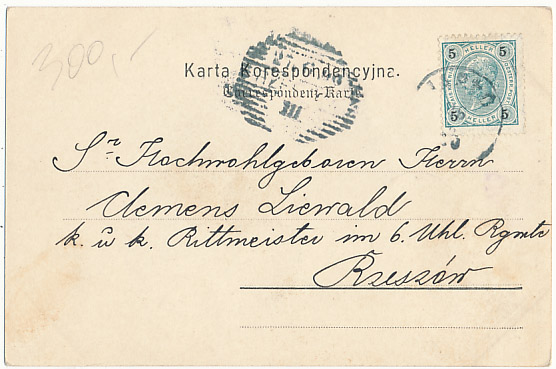 300,-
5 HELLER 5
5 HELLER 5
Karta Korespondencyjna.
Correspondenz-Karte
III
Sr Hochwohlgeboren Herrn
Clemens Liewald
k. u k. Rittmeister im 6. Uhl. Rgmte
Rzeszów